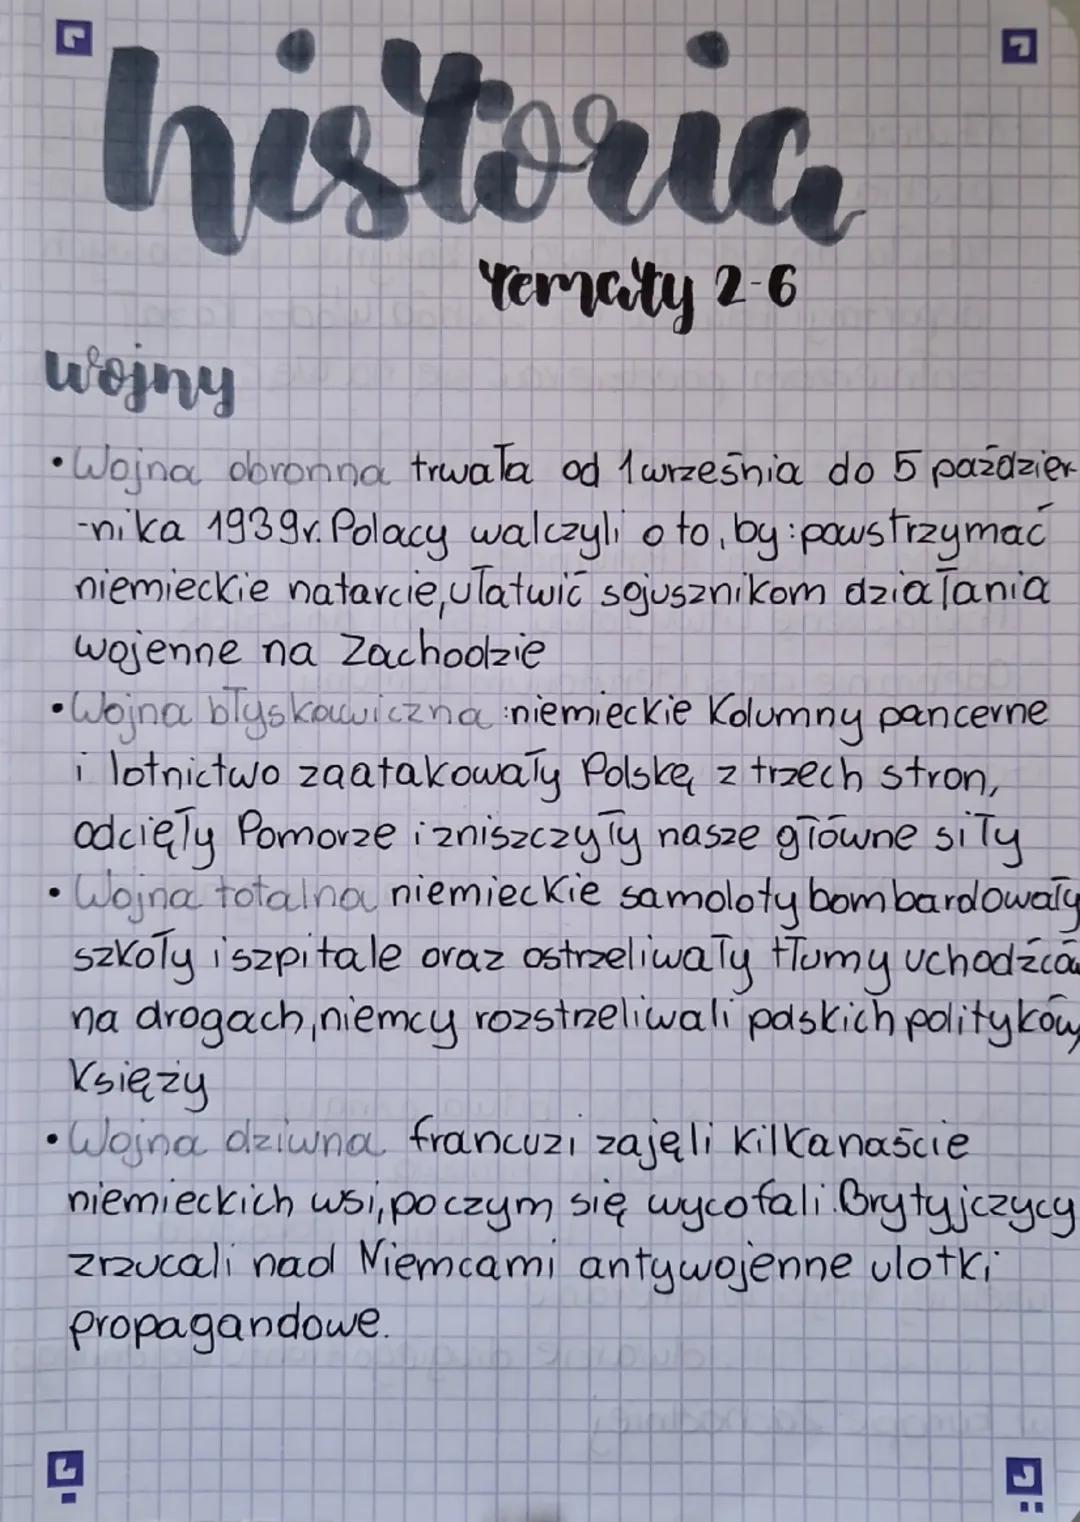 historia
tematy 2-6
wojny
• Wojna obronna trwała od 1 września do 5 paździer-
-nika 1939r. Polacy walczyli o to, by: powstrzymać
niemieckie natarcie, ułatwić sojusznikom działania
wojenne na Zachodzie
• Wojna błyskawiczna: niemieckie kolumny pancerne
i lotnictwo zaatakowały Polskę z trzech stron,
odcięły Pomorze i zniszczyły nasze główne siły
• Wojna totalna niemieckie samoloty bombardowały
szkoły i szpitale oraz ostrzeliwały tłumy uchodźców
na drogach, niemcy rozstrzeliwali polskich polityków,
księży
• Wojna dziwna francuzi zajęli kilkanaście
niemieckich wsi, poczym się wycofali. Brytyjczycy
zrzucali nad Niemcami antywojenne ulotki
propagandowe.